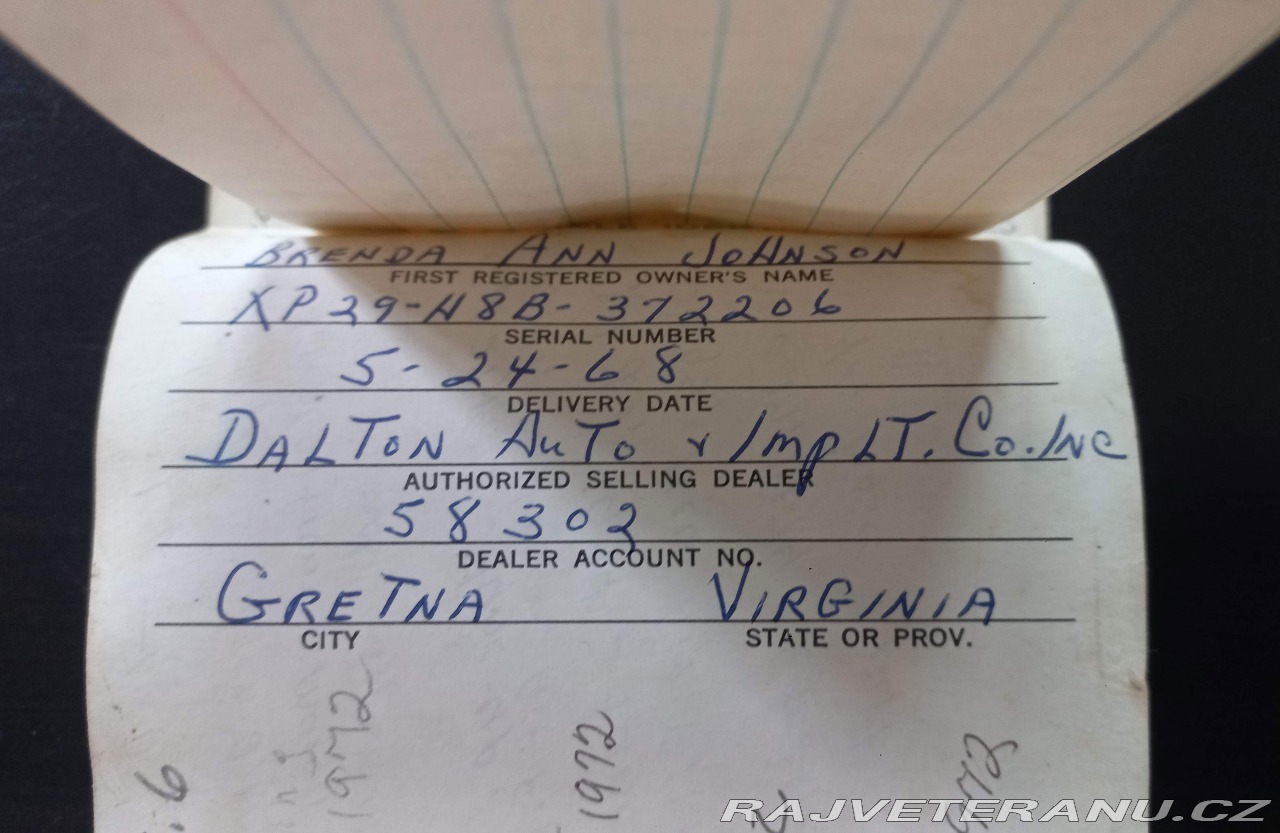 BRENDA ANN JOHNSON
FIRST REGISTERED OWNER'S NAME
XP29-H8B-372206
SERIAL NUMBER
5-24-68
DELIVERY DATE
DALTON AUTO & IMPLT. CO. INC
AUTHORIZED SELLING DEALER
58302
DEALER ACCOUNT NO.
GRETNA VIRGINIA
CITY STATE OR PROV.
1972
1972
6
RAJVETERANU.CZ